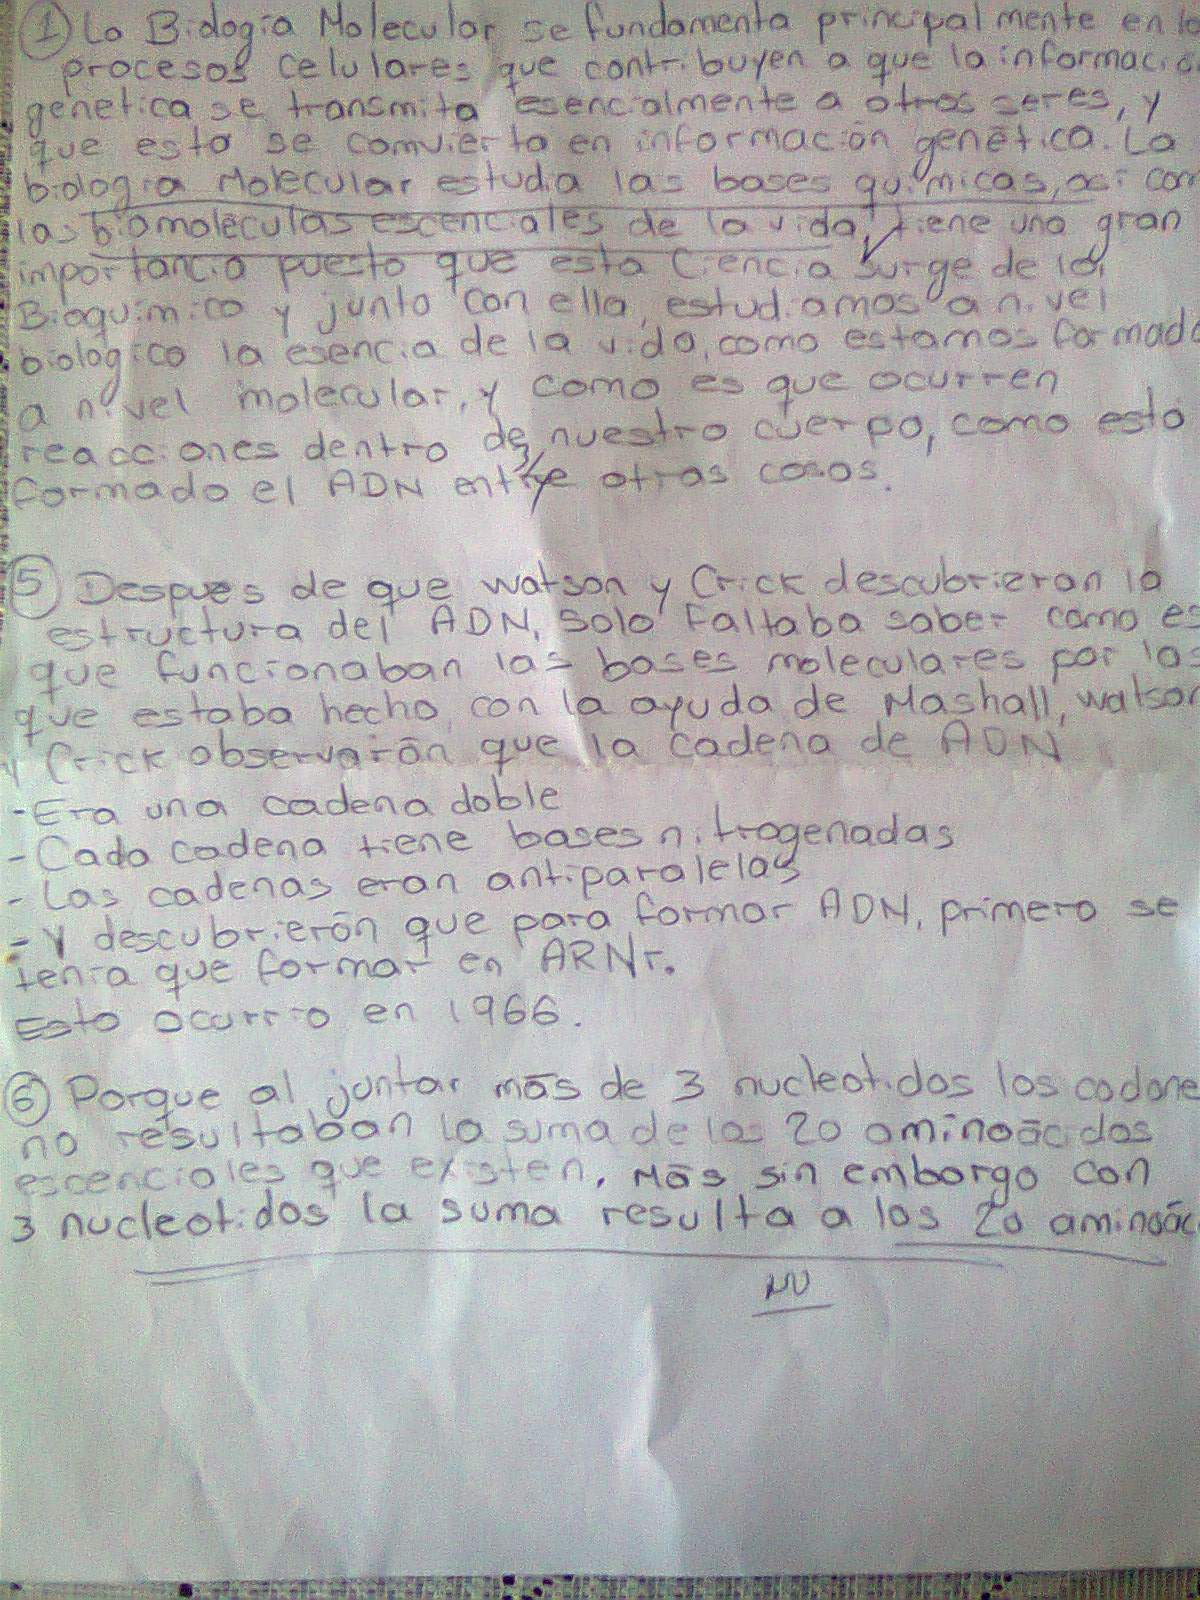 ① La Biología Molecular se fundamenta principalmente en lo
procesos celulares que contribuyen a que la informació
genetica se transmita esencialmente a otros seres, y
que esta se comvierta en información genética. La
biologia Molecular estudia las bases químicas, asi com
las biomoléculas escenciales de la vida, tiene una gran
importancia puesto que esta Ciencia surge de la
Bioquímica y junto con ella, estudiamos a nivel
biologico la esencia de la vida, como estamos formado
a nivel molecular, y como es que ocurren
reacciones dentro de nuestro cuerpo, como esta
formado el ADN entre otras cosas.
⑤ Despues de que Watson y Crick descubrieron la
estructura del ADN, solo faltaba saber como es
que funcionaban las bases moleculares por las
que estaba hecho, con la ayuda de Mashall, Watson
y Crick observarón que la cadena de ADN
- Era una cadena doble
- Cada cadena tiene bases nitrogenadas
- Las cadenas eran antiparalelas
- Y descubrierón que para formar ADN, primero se
tenia que formar en ARNr.
Esto ocurrio en 1966.
⑥ Porque al juntar más de 3 nucleotidos los codone
no resultaban la suma de los 20 aminoácidos
escenciales que existen. Más sin embargo con
3 nucleotidos la suma resulta a los 20 aminoác
NO